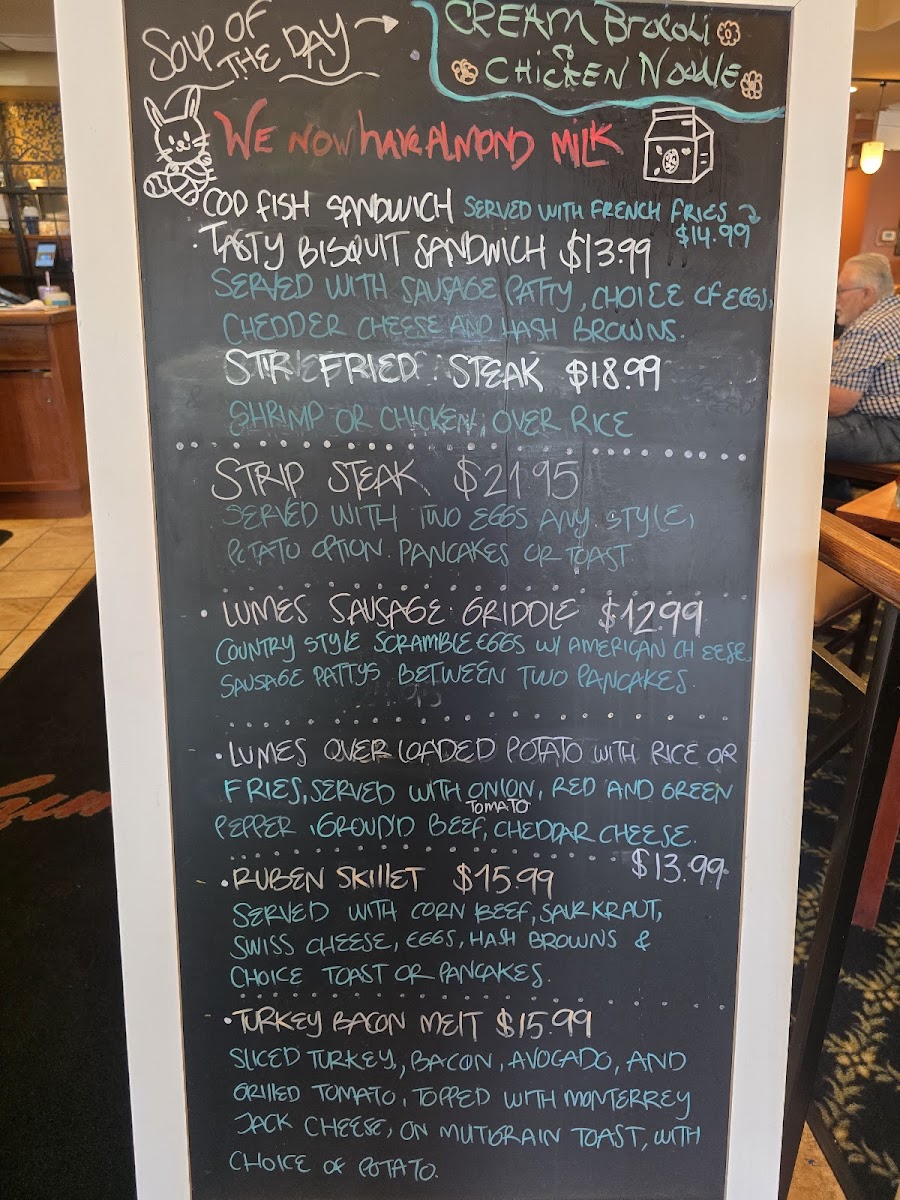 SOUP OF THE DAY → CREAM BROCOLI
& CHICKEN NOODLE
WE NOW HAVE ALMOND MILK
COD FISH SANDWICH SERVED WITH FRENCH FRIES
$14.99
· TASTY BISQUIT SANDWICH $13.99
SERVED WITH SAUSAGE PATTY, CHOICE OF EGGS,
CHEDDER CHEESE AND HASH BROWNS.
STIR FRIED STEAK $18.99
SHRIMP OR CHICKEN, OVER RICE
STRIP STEAK $21.95
SERVED WITH TWO EGGS ANY STYLE,
POTATO OPTION. PANCAKES OR TOAST
· LUMES SAUSAGE GRIDDLE $12.99
COUNTRY STYLE SCRAMBLE EGGS W/ AMERICAN CHEESE,
SAUSAGE PATTYS BETWEEN TWO PANCAKES.
· LUMES OVER LOADED POTATO WITH RICE OR
FRIES, SERVED WITH ONION, RED AND GREEN
TOMATO
PEPPER, GROUND BEEF, CHEDDAR CHEESE.
$13.99
· RUBEN SKILLET $15.99
SERVED WITH CORN BEEF, SAURKRAUT,
SWISS CHEESE, EGGS, HASH BROWNS &
CHOICE TOAST OR PANCAKES.
· TURKEY BACON MELT $15.99
SLICED TURKEY, BACON, AVOCADO, AND
GRILLED TOMATO, TOPPED WITH MONTERREY
JACK CHEESE, ON MUTIGRAIN TOAST, WITH
CHOICE OF POTATO.